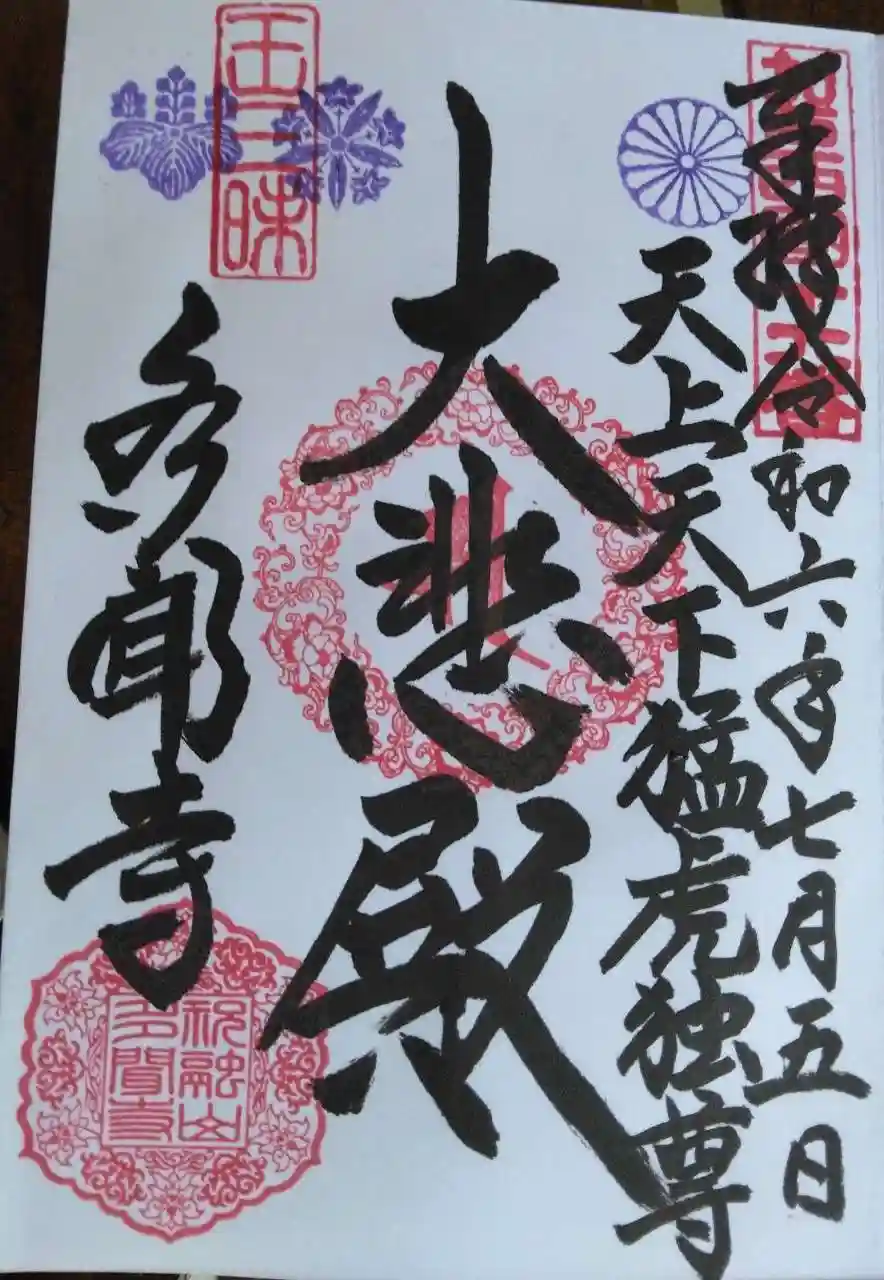 奉拝 令和六年七月五日
天上天下猛虎独尊
大悲殿
多聞寺
王三昧
祝融山
多聞寺